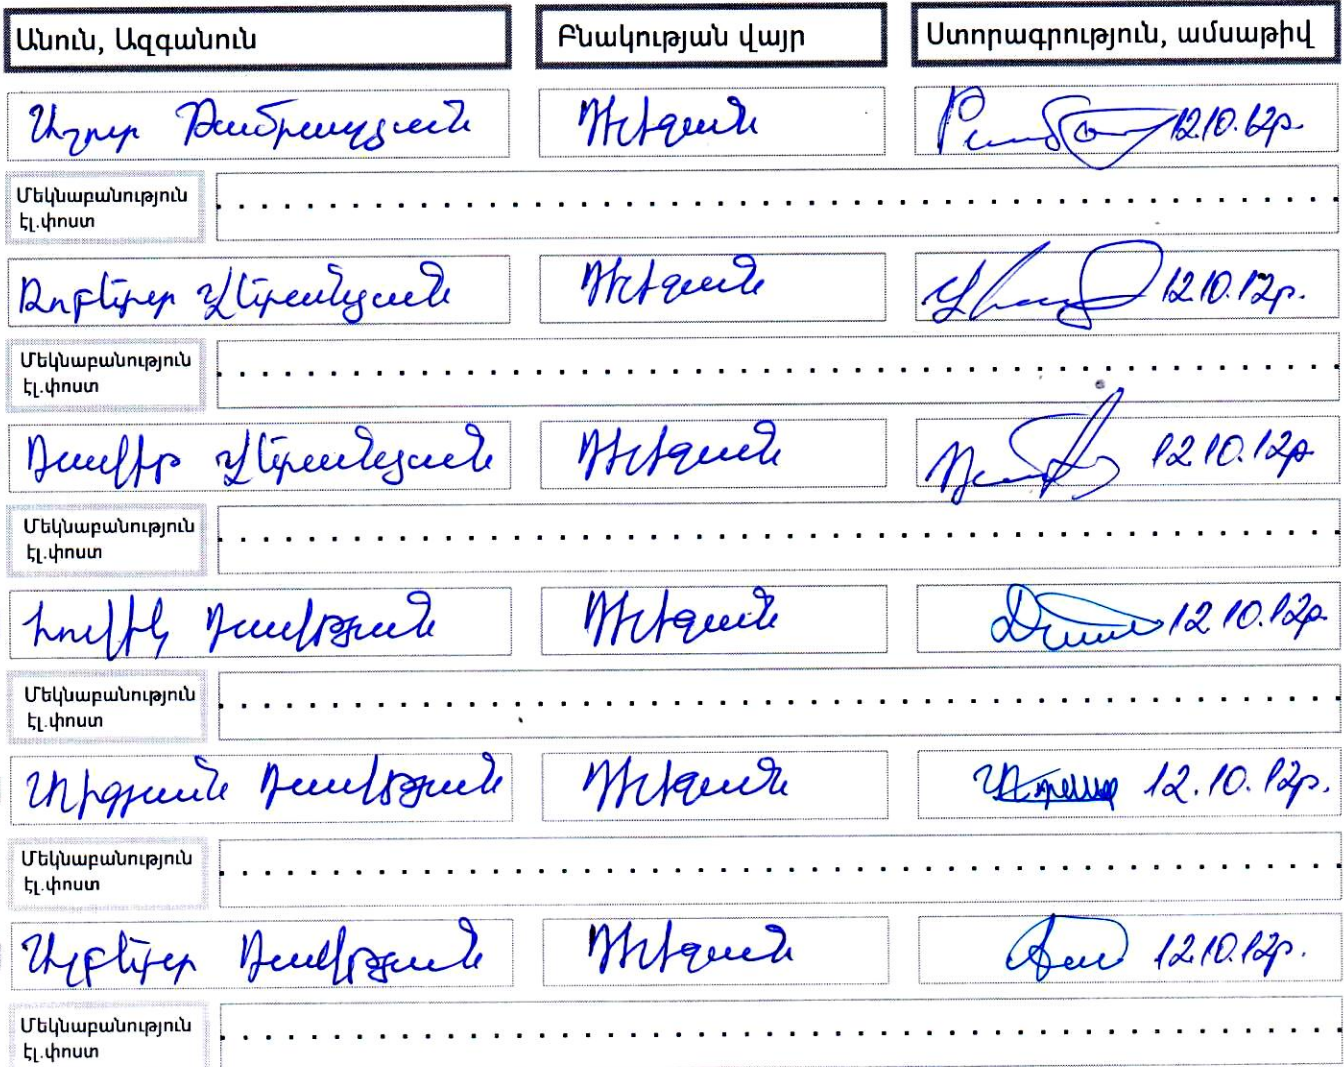 Անուն, Ազգանուն Բնակության վայր Ստորագրություն, ամսաթիվ
Դիլիջան 12.10.12թ.
Մեկնաբանություն
էլ.փոստ
Ռոբերտ Վերանյան Դիլիջան 12.10.12թ.
Մեկնաբանություն
էլ.փոստ
Դավիթ Վերանյան Դիլիջան 12.10.12թ
Մեկնաբանություն
էլ.փոստ
Հովիկ Դավթյան Դիլիջան 12.10.12թ.
Մեկնաբանություն
էլ.փոստ
Դավթյան Դիլիջան 12.10.12թ.
Մեկնաբանություն
էլ.փոստ
Ալբերտ Դավթյան Դիլիջան 12.10.12թ.
Մեկնաբանություն
էլ.փոստ